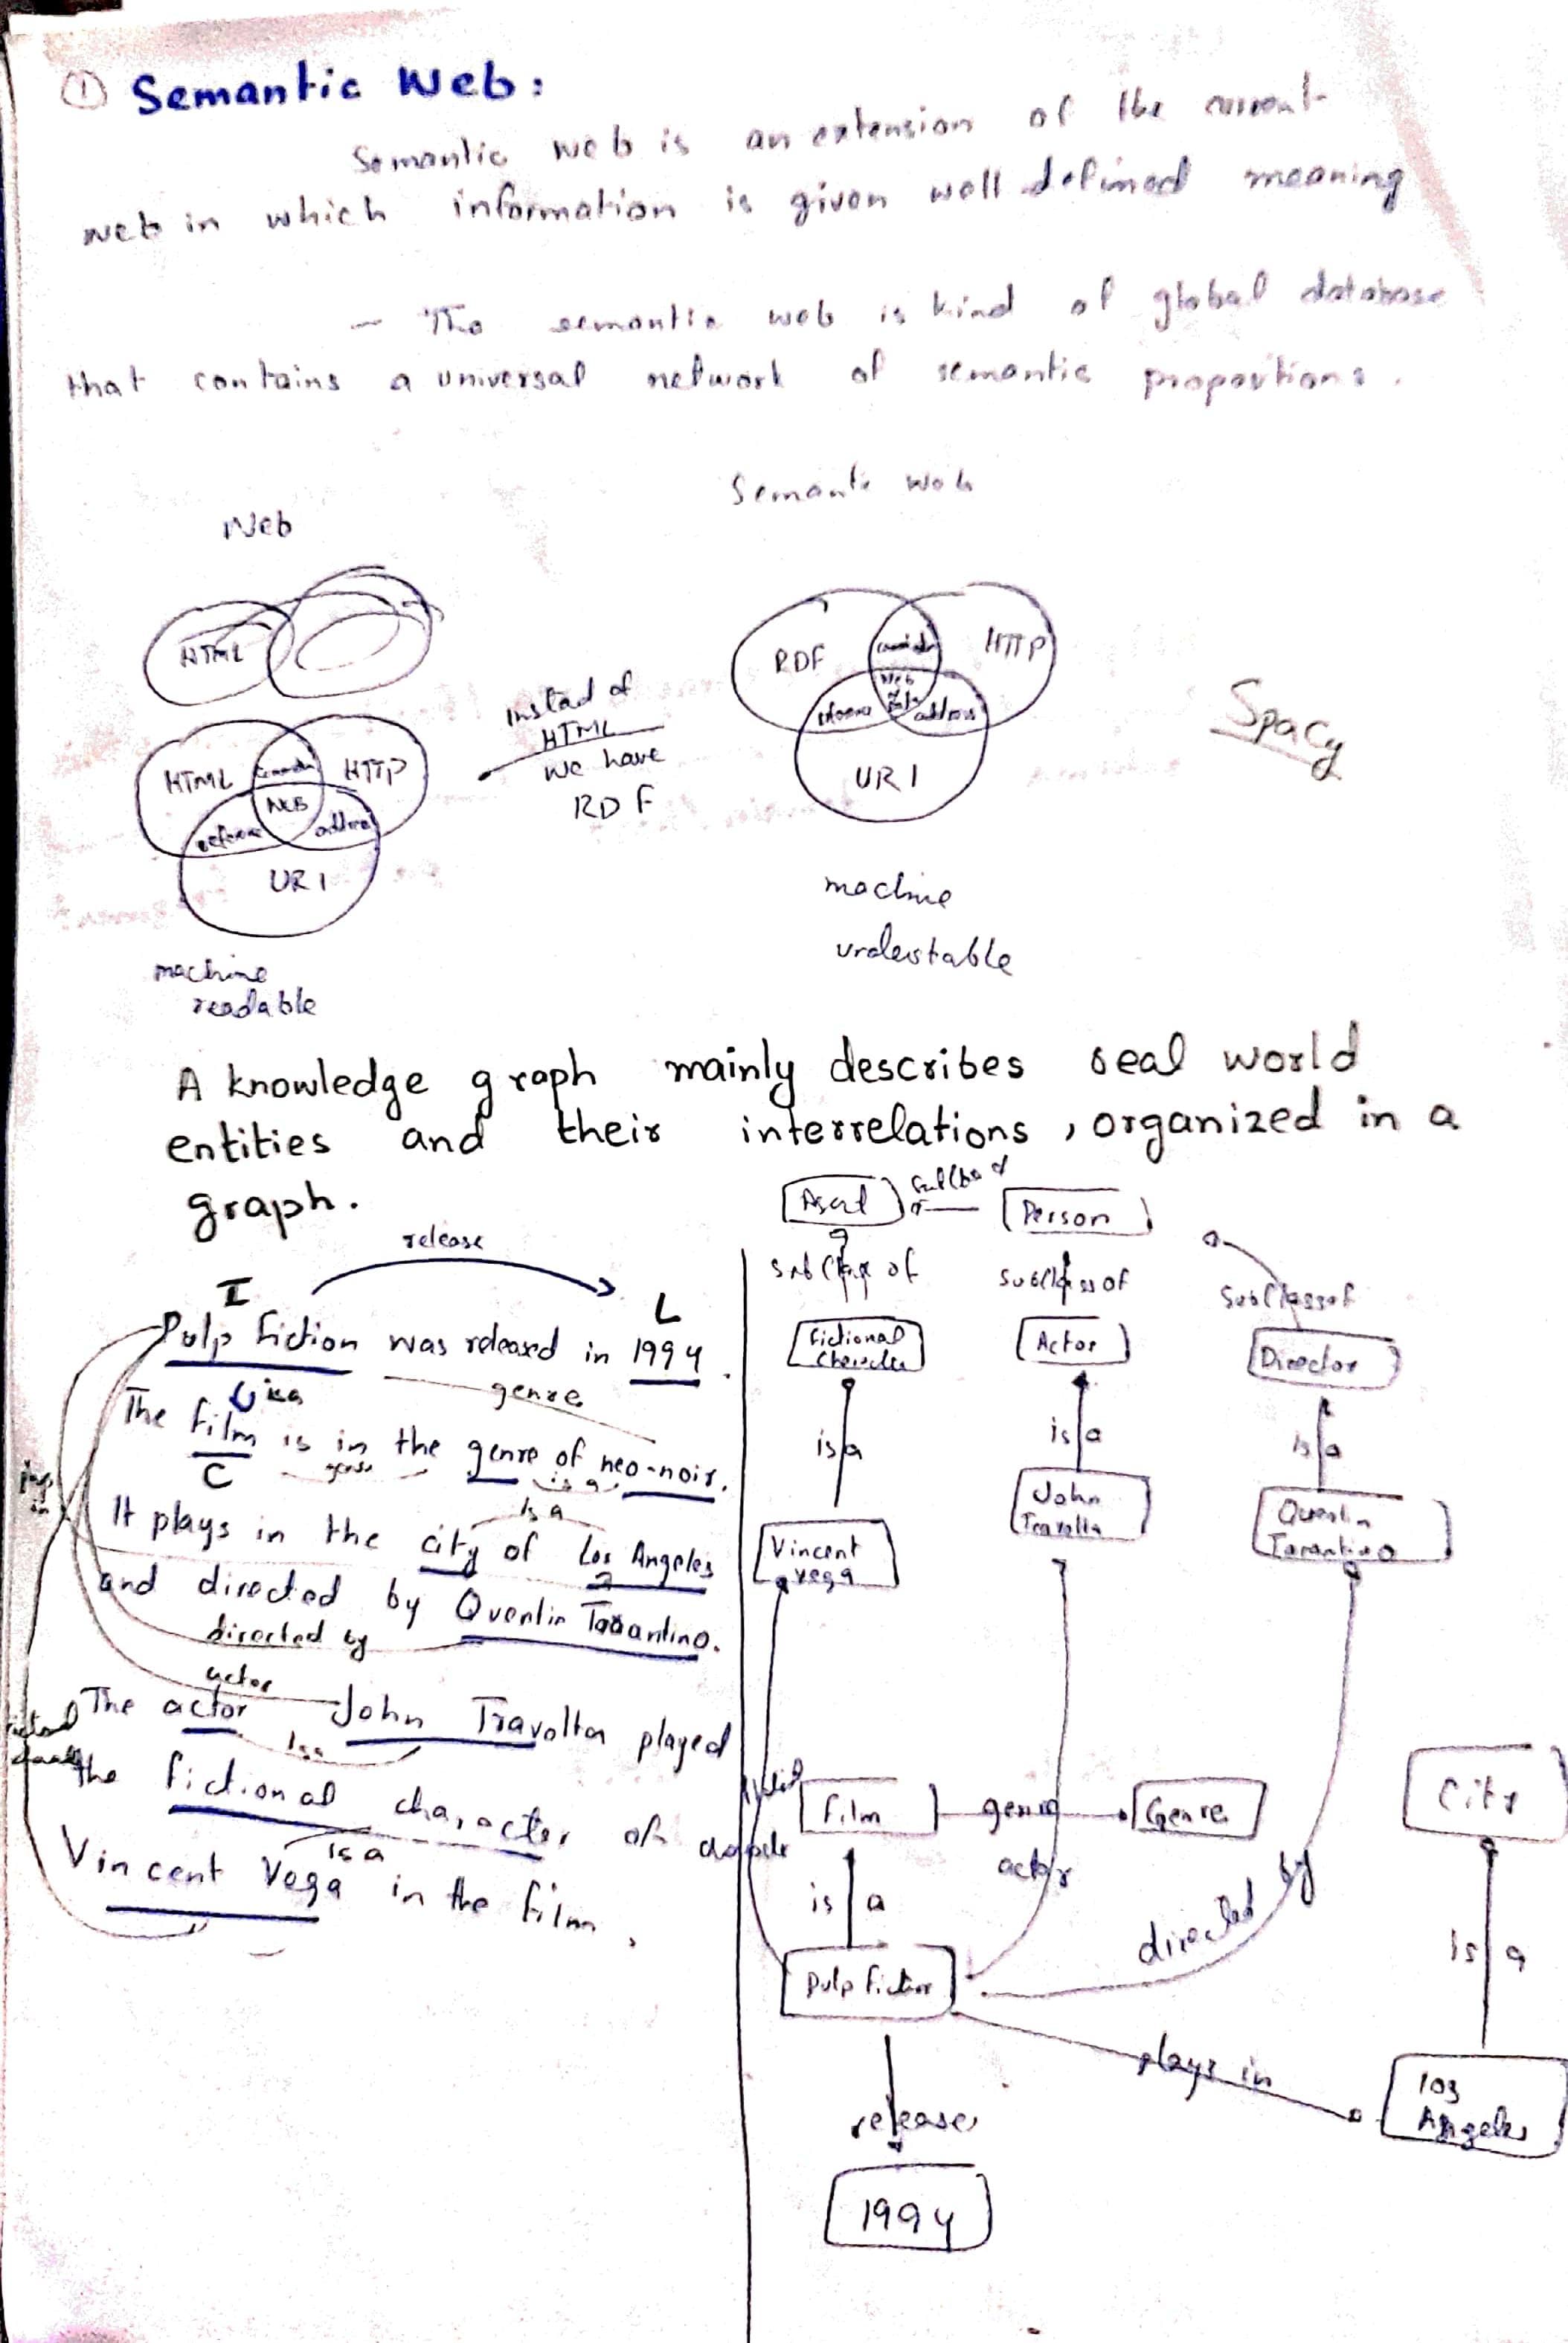 ① Semantic Web:
Semantic web is an extension of the current
web in which information is given well defined meaning
- The semantic web is kind of global database
that contains a universal network of semantic propositions.
Semantic web
Web
HTML
RDF
HTTP
Web
reference
address
URI
instead of
HTML
we have
RDF
Spacy
HTML
HTTP
WEB
reference
address
URI
machine
understable
machine
readable
A knowledge graph mainly describes real world
entities and their interrelations, organized in a
graph.
release
I
L
Pulp fiction was released in 1994.
is a
genre
The film is in the genre of neo-noir.
C
genre
is a
plays
in
is a
It plays in the city of Los Angeles
and directed by Quentin Tarantino.
directed by
actor
The actor John Travolta played
is a
the fictional character of
is a
Vincent Vega in the film.
Person
subclass of
subclass of
Subclassof
Fictional
Character
Actor
Director
is a
is a
is a
Vincent
vega
John
Travolta
Quentin
Tarantino
film
genre
Genre
City
actor
is a
directed by
is a
Pulp fiction
plays in
los
Angeles
release
1994